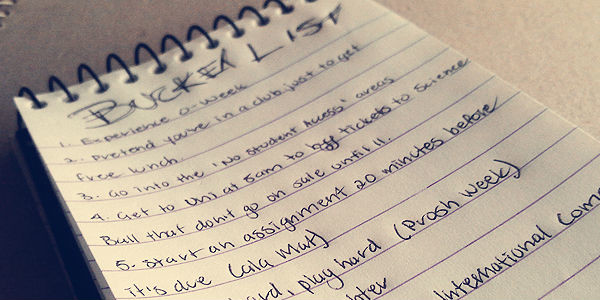 BUCKET LIST
1. Experience O-Week
2. Pretend you're in a club just to get
free lunch.
3. Go into the 'No Student Access' areas
4. Get to Uni at 5am to buy tickets to Science
Ball that dont go on sale until 11.
5. Start an assignment 20 minutes before
it's due (ala Mat)
hard, play hard (Prosh Week)
International